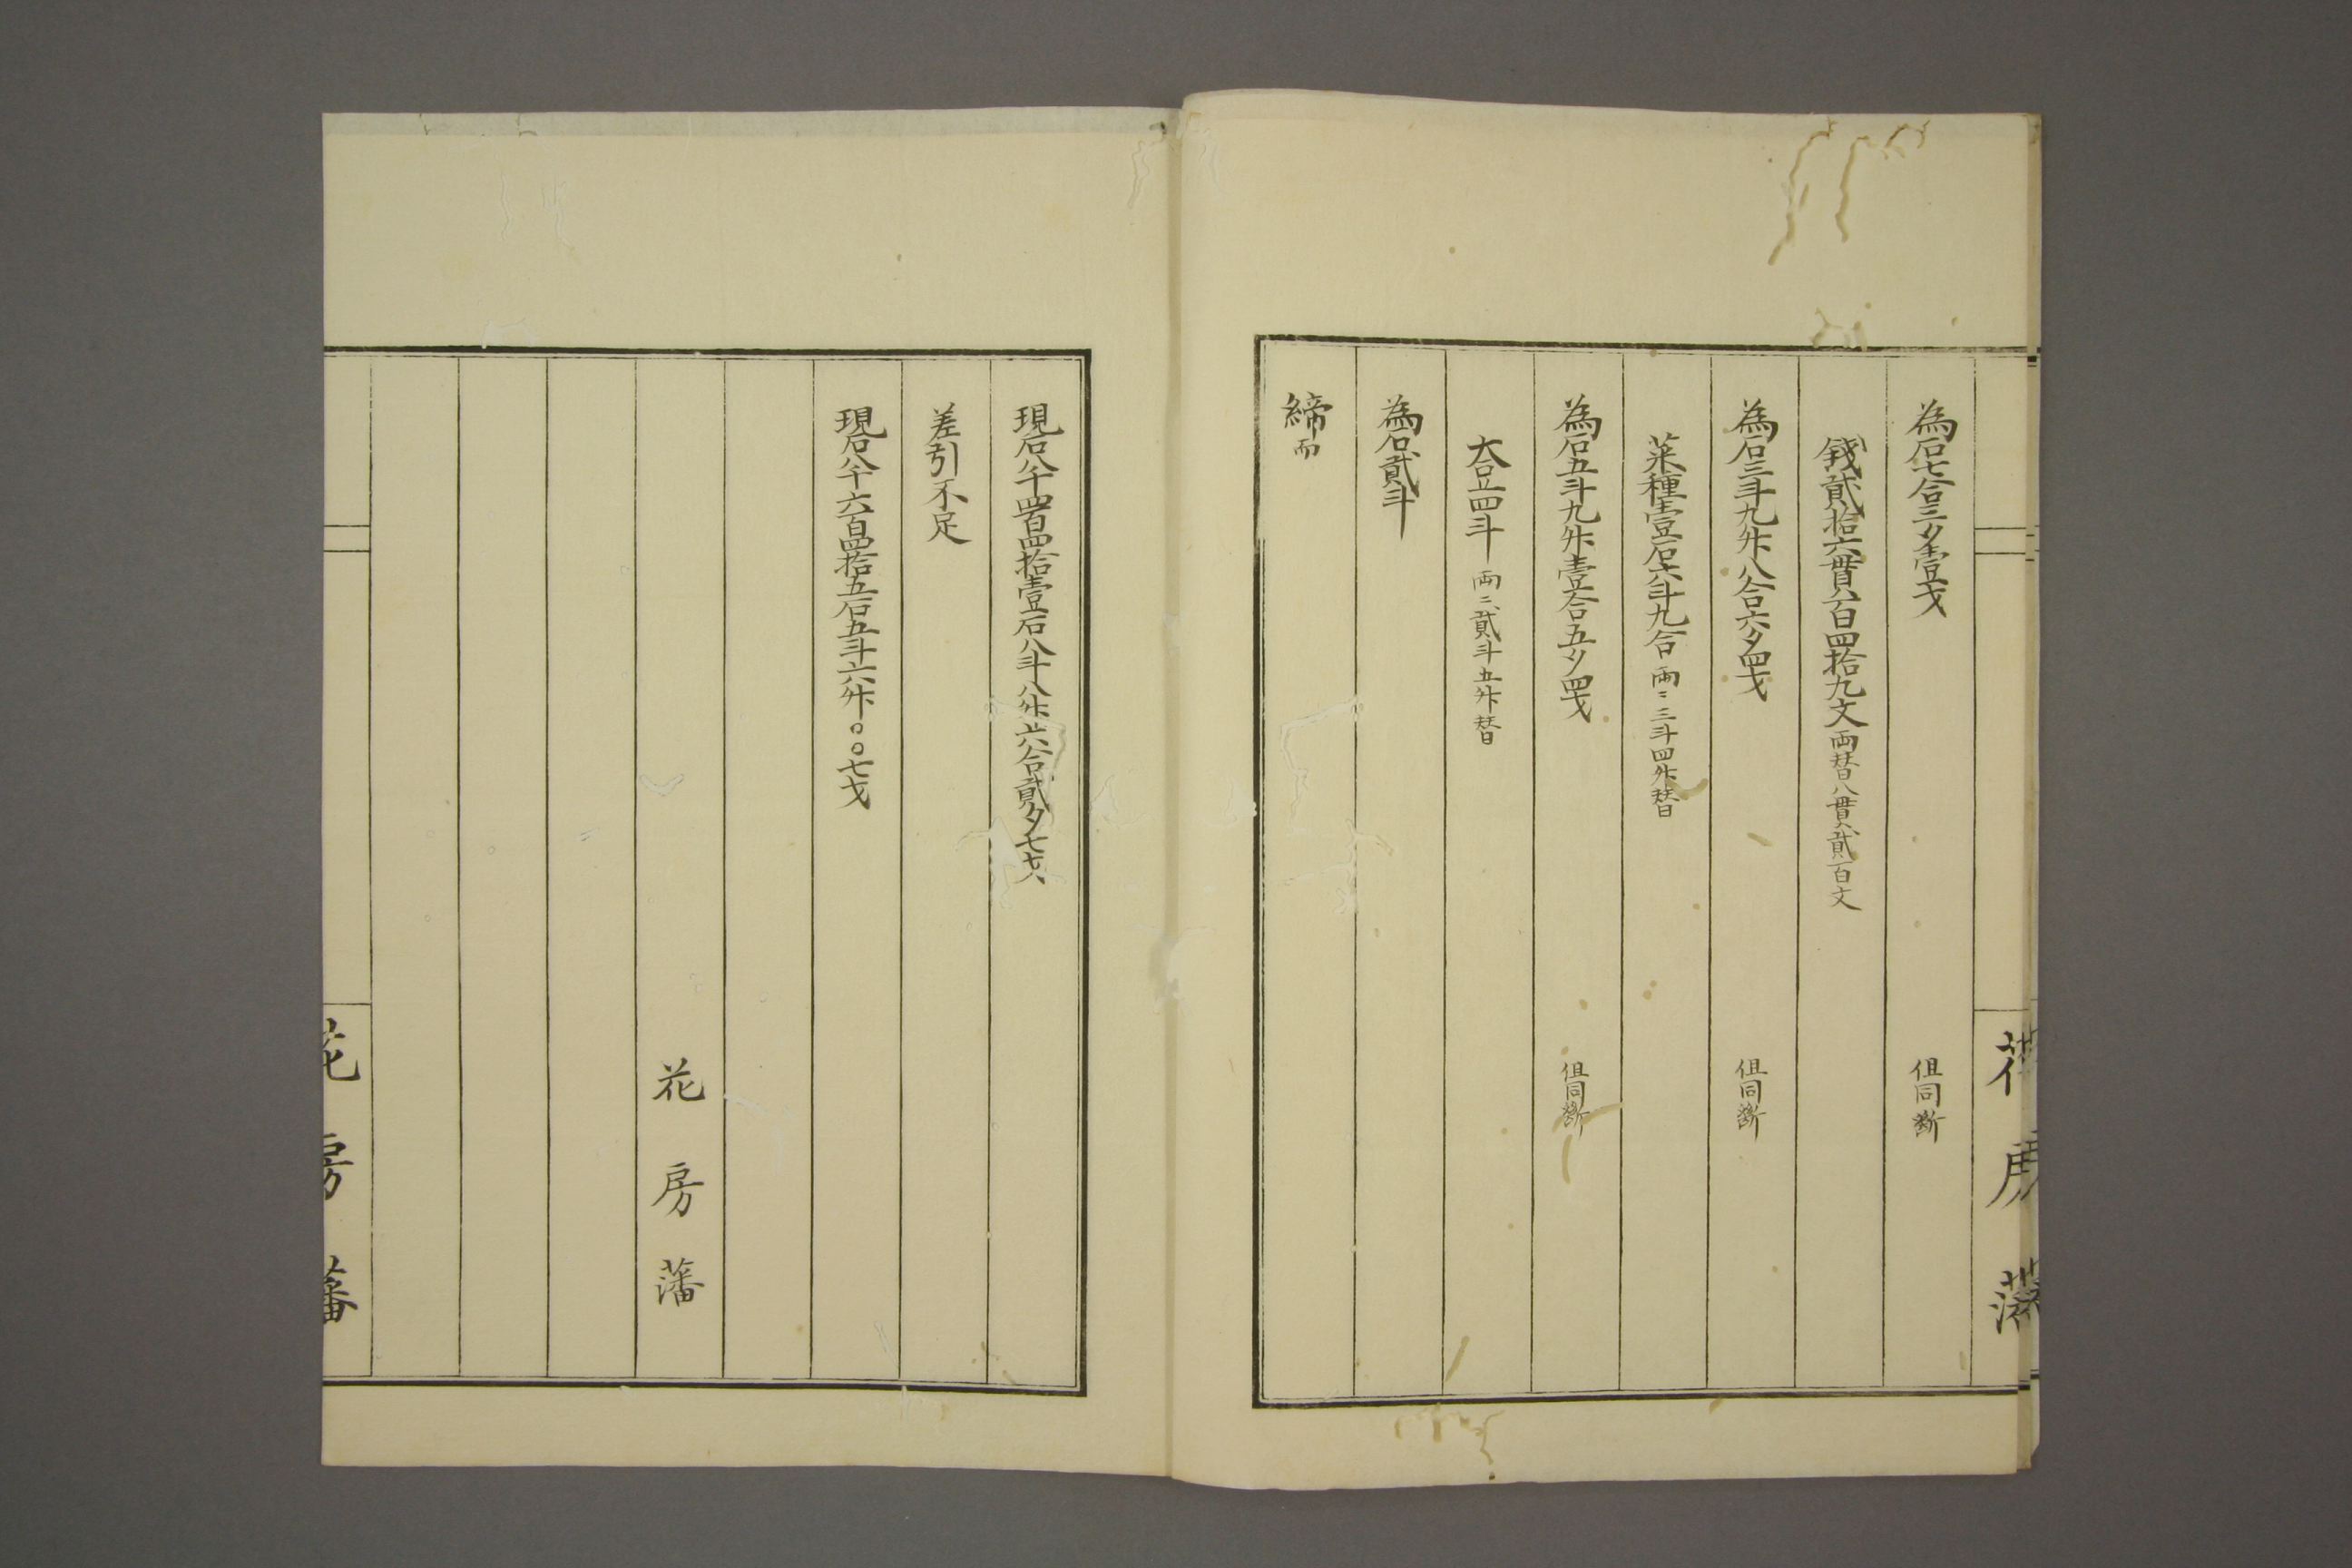 花房藩
為石七合三夕壹才
但同断
錢貳拾六貫八百四拾九文 両替八貫貳百文
為石三斗九升八合六夕四才
但同断
菜種壹石六斗九合 両ニ三斗四升替
為石五斗九升壹合五夕四才
但同断
大豆四斗 両ニ貳斗五升替
為石貳斗
締而
現石八千四百四拾壹石八斗八升六合貳夕七才
差引不足
現石八千六百四拾五石五斗六升〇〇七才
花房藩
花房藩